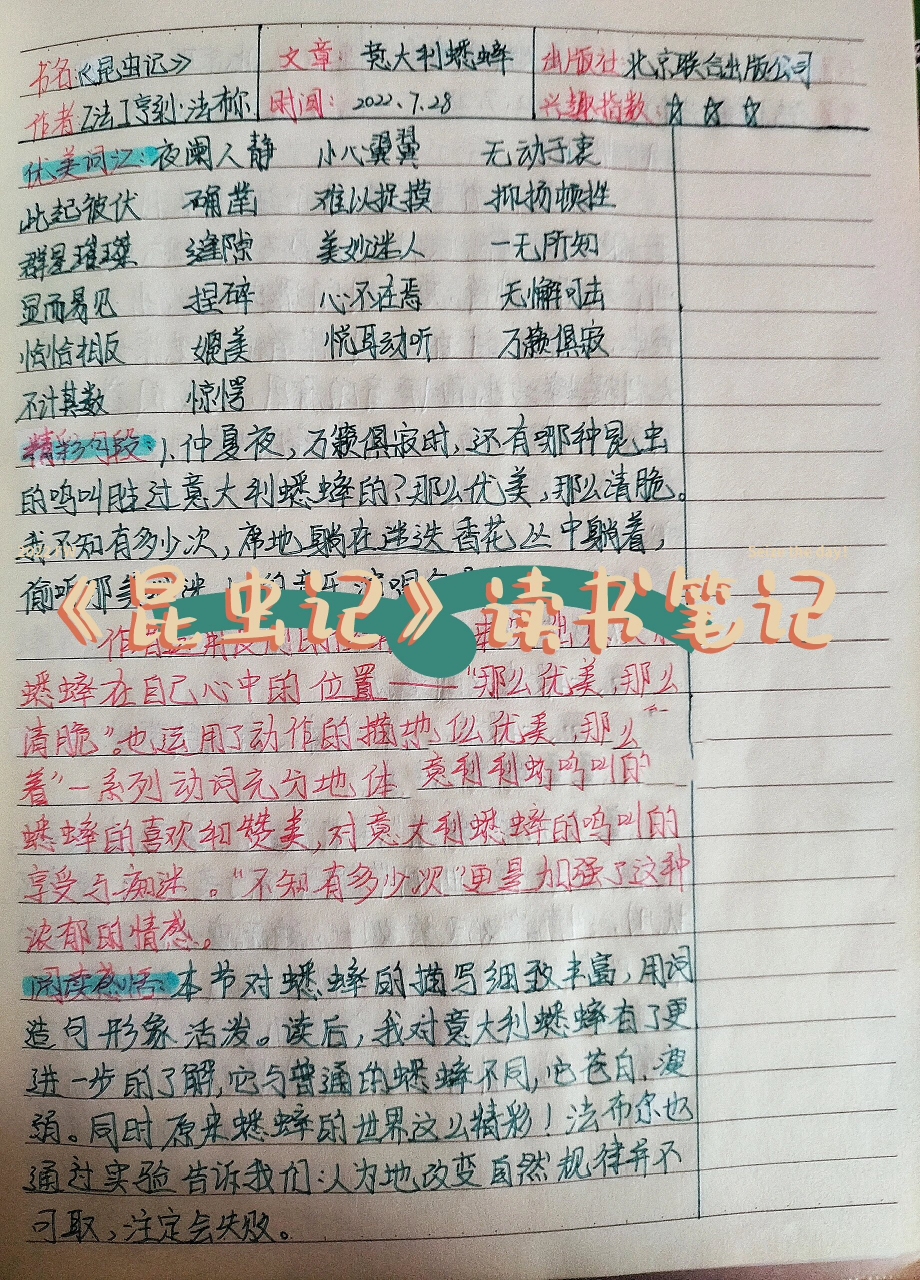 书名:《昆虫记》 文章: 意大利蟋蟀 出版社:北京联合出版公司
作者:[法]亨利·法布尔 时间: 2022.7.28 兴趣指数:☆ ☆ ☆
优美词汇:夜阑人静 小心翼翼 无动于衷
此起彼伏 确凿 难以捉摸 抑扬顿挫
群星璀璨 缝隙 美妙迷人 一无所知
显而易见 捏碎 心不在焉 无懈可击
恰恰相反 媲美 悦耳动听 万籁俱寂
不计其数 惊愕
精彩句段:1.仲夏夜,万籁俱寂时,还有哪种昆虫
的鸣叫胜过意大利蟋蟀的?那么优美,那么清脆。
我不知有多少次,席地躺在迷迭香花丛中躺着,
偷听那美
《昆虫记》读书笔记
作者
蟋蟀在自己心中的位置——“那么优美,那么
清脆”。也运用了动作的描 么优美 那么
着”一系列动词充分地体 鸣叫的
蟋蟀的喜欢和赞美,对意大利蟋蟀的鸣叫的
享受与痴迷。“不知有多少次”更是加强了这种
浓郁的情感。
阅读感悟:本节对蟋蟀的描写细致丰富,用词
造句形象活泼。读后,我对意大利蟋蟀有了更
进一步的了解,它与普通的蟋蟀不同,它苍白、瘦
弱。同时原来蟋蟀的世界这么精彩!法布尔也
通过实验告诉我们:人为地改变自然规律并不
可取,注定会失败。